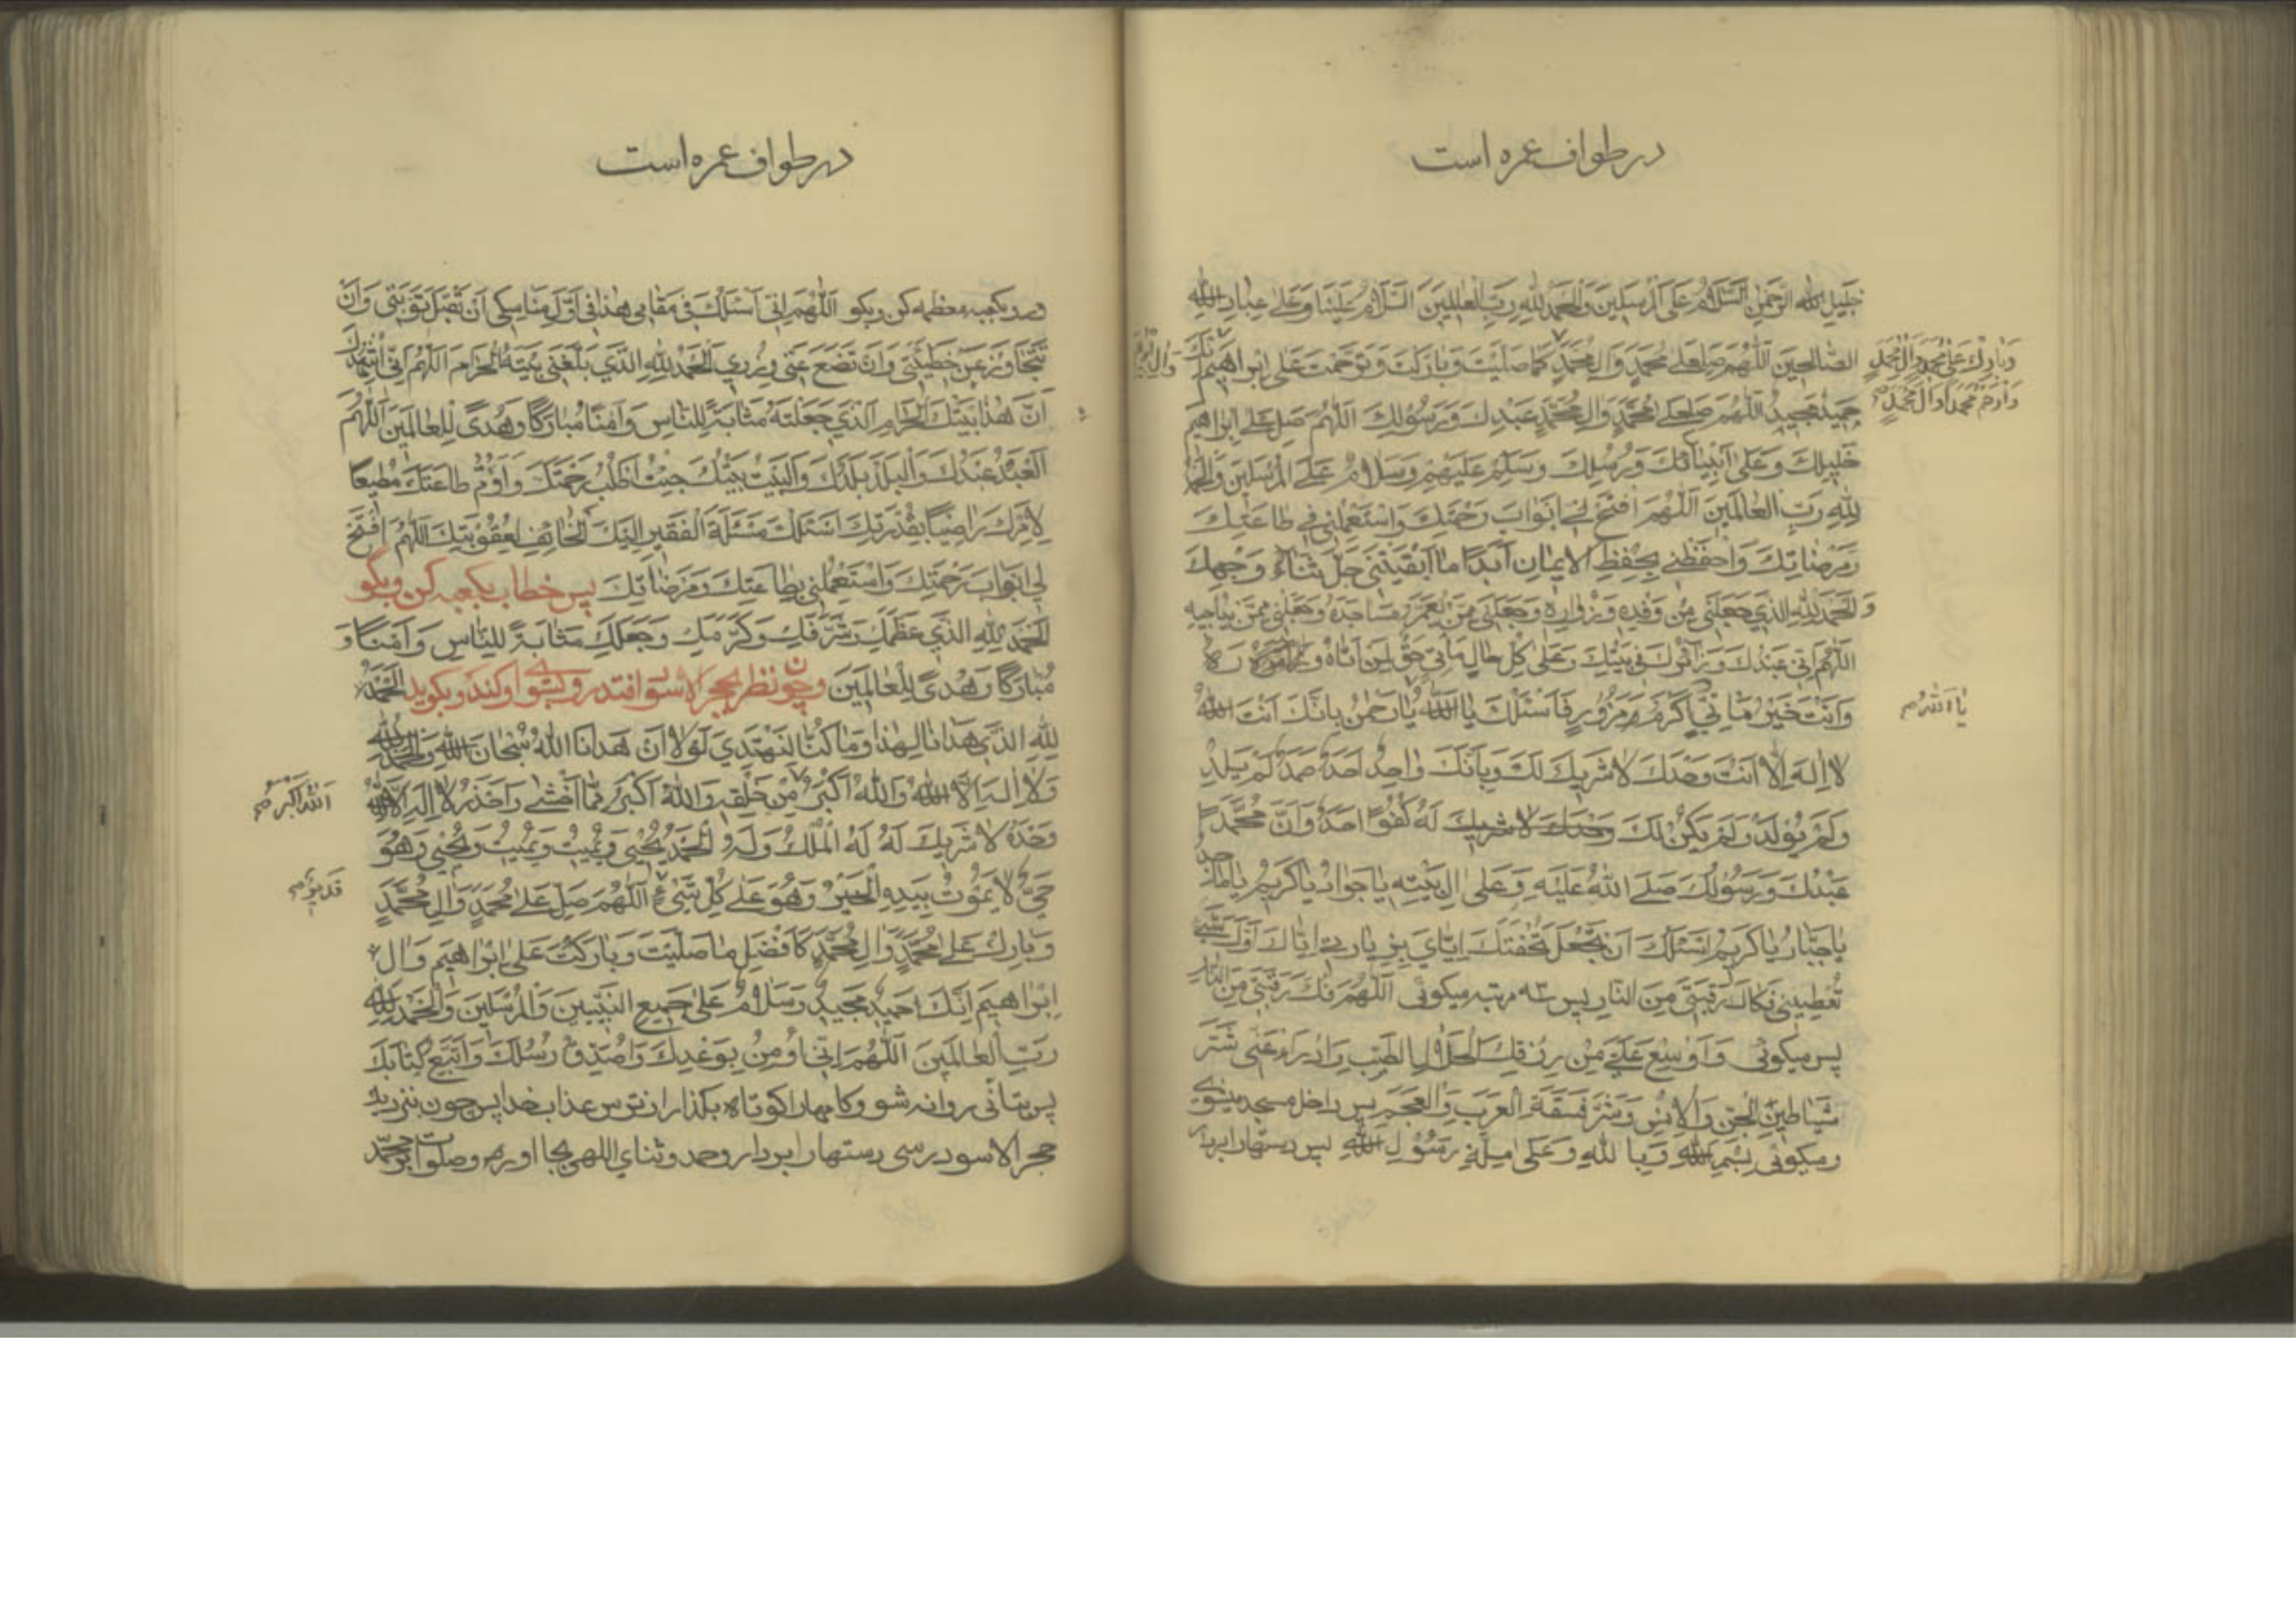 در طواف عمره است
خَليلِ اللهِ الرَّحمٰنِ السَّلامُ عَلَى المُرسَلينَ وَالحَمدُ لِلّهِ رَبِّ العٰالَمينَ السَّلامُ عَلَينٰا وَعَلىٰ عِبٰادِ اللهِ
الصّٰالِحينَ اَللّهُمَّ صَلِّ عَلىٰ مُحَمَّدٍ وَالِ مُحَمَّدٍ كَمٰا صَلَّيتَ وَبٰارَكتَ وَتَرَحَّمتَ عَلىٰ اِبرٰاهيمَ
وَبٰارِك عَلىٰ مُحَمَّدٍ وَالِ مُحَمَّدٍ
وَارحَم مُحَمَّداً وَالَ مُحَمَّدٍ
حَميدٌ مَجيدٌ اَللّهُمَّ صَلِّ عَلىٰ مُحَمَّدٍ وَالِ مُحَمَّدٍ عَبدِكَ وَرَسُولِكَ اَللّهُمَّ صَلِّ عَلىٰ اِبرٰاهيمَ
خَليلِكَ وَعَلىٰ اَنبِيٰائِكَ وَرُسُلِكَ وَسَلِّم عَلَيهِم وَسَلامٌ عَلَى المُرسَلينَ وَالحَمدُ
لِلّهِ رَبِّ العٰالَمينَ اَللّهُمَّ افتَح لي اَبوٰابَ رَحمَتِكَ وَاستَعمِلني في طٰاعَتِكَ
وَمَرضٰاتِكَ وَاحفَظني بِحِفظِ الايمٰانِ اَبَداً مٰا اَبقَيتَني جَلَّ ثَنٰاءُ وَجهِكَ
وَالحَمدُ لِلّهِ الَّذي جَعَلَني مِن وَفدِهِ وَزُوّٰارِهِ وَجَعَلَني مِمَّن يَعمُرُ مَسٰاجِدَهُ وَجَعَلَني مِمَّن يُنٰاجيهِ
اَللّهُمَّ اِنّي عَبدُكَ وَزٰائِرُكَ في بَيتِكَ وَعَلىٰ كُلِّ مَأتِيٍّ حَقٌّ لِمَن اَتٰاهُ وَزٰارَهُ
وَاَنتَ خَيرُ مَأتِيٍّ وَاَكرَمُ مَزُورٍ فَاَسئَلُكَ يٰا اَللهُ يٰا رَحمٰنُ بِاَنَّكَ اَنتَ اللهُ
يٰا اَللهُ
لا اِلهَ اِلّا اَنتَ وَحدَكَ لا شَريكَ لَكَ وَبِاَنَّكَ وٰاحِدٌ اَحَدٌ صَمَدٌ لَم يَلِد
وَلَم يُولَد وَلَم يَكُن لَكَ وَحدَكَ لا شَريكَ لَهُ كُفُوًا اَحَدٌ وَاَنَّ مُحَمَّدًا
عَبدُكَ وَرَسُولُكَ صَلَّى اللهُ عَلَيهِ وَعَلىٰ اَلِ بَيتِهِ يٰا جَوٰادُ يٰا كَريمُ يٰا مٰاجِدُ
يٰا جَبّٰارُ يٰا كَريمُ اَسئَلُكَ اَن تَجعَلَ تُحفَتَكَ اِيّٰايَ بِزِيٰارَتي اِيّٰاكَ اَوَّلَ شَيءٍ
تُعطِيَني فَكٰاكَ رَقَبَتي مِنَ النّٰارِ پس سه مرتبه ميكوئى اَللّهُمَّ فُكَّ رَقَبَتي مِنَ النّٰارِ
پس ميكوئى وَاَوسِع عَلَيَّ مِن رِزقِكَ الحَلالِ الطَّيِّبِ وَادرَأ عَنّي شَرَّ
شَيٰاطينِ الجِنِّ وَالاِنسِ وَشَرَّ فَسَقَةِ العَرَبِ وَالعَجَمِ پس داخل مسجد ميشوى
وميكوئى بِسمِ اللهِ وَبِاللهِ وَعَلىٰ مِلَّةِ رَسُولِ اللهِ پس دستهارا بردار
در طواف عمره است
ورو بكعبه معظمه كن وبكو اَللّهُمَّ اِنّي اَسئَلُكَ في مَقٰامي هٰذا في اَوَّلِ مَنٰاسِكي اَن تَقبَلَ تَوبَتي وَاَن
تَتَجٰاوَزَ عَن خَطيئَتي وَاَن تَضَعَ عَنّي وِزري اَلحَمدُ لِلّهِ الَّذي بَلَّغَني بَيتَهُ الحَرٰامَ اَللّهُمَّ اِنّي اُشهِدُكَ
اَنَّ هٰذا بَيتُكَ الحَرٰامُ الَّذي جَعَلتَهُ مَثٰابَةً لِلنّٰاسِ وَاَمنًا مُبٰارَكًا وَهُدًى لِلعٰالَمينَ اَللّهُمَّ
العَبدُ عَبدُكَ وَالبَلَدُ بَلَدُكَ وَالبَيتُ بَيتُكَ جِئتُ اَطلُبُ رَحمَتَكَ وَاَؤُمُّ طٰاعَتَكَ مُطيعًا
لِاَمرِكَ رٰاضِيًا بِقَدَرِكَ اَسئَلُكَ مَسئَلَةَ الفَقيرِ اِلَيكَ الخٰائِفِ لِعُقُوبَتِكَ اَللّهُمَّ افتَح
لي اَبوٰابَ رَحمَتِكَ وَاستَعمِلني بِطٰاعَتِكَ وَمَرضٰاتِكَ پس خطاب بكعبه كن وبكو
اَلحَمدُ لِلّهِ الَّذي عَظَّمَكِ وَشَرَّفَكِ وَكَرَّمَكِ وَجَعَلَكِ مَثٰابَةً لِلنّٰاسِ وَاَمنًا وَ
مُبٰارَكًا وَهُدًى لِلعٰالَمينَ وچون نظر بحجر الاسود افتد رو بسوى او كند وبكويد اَلحَمدُ
لِلّهِ الَّذي هَدٰانٰا لِهٰذا وَمٰا كُنّٰا لِنَهتَدِيَ لَولا اَن هَدٰانَا اللهُ سُبحٰانَ اللهِ وَالحَمدُ لِلّهِ
وَلا اِلهَ اِلَّا اللهُ وَاللهُ اَكبَرُ مِن خَلقِهِ وَاللهُ اَكبَرُ مِمّٰا اَخشىٰ وَاَحذَرُ لا اِلهَ اِلَّا اللهُ
اَللهُ اَكبَرُ
وَحدَهُ لا شَريكَ لَهُ لَهُ المُلكُ وَلَهُ الحَمدُ يُحيي وَيُميتُ وَيُميتُ وَيُحيي وَهُوَ
حَيٌّ لا يَمُوتُ بِيَدِهِ الخَيرُ وَهُوَ عَلىٰ كُلِّ شَيءٍ اَللّهُمَّ صَلِّ عَلىٰ مُحَمَّدٍ وَالِ مُحَمَّدٍ
قَديرٌ
وَبٰارِك عَلىٰ مُحَمَّدٍ وَالِ مُحَمَّدٍ كَاَفضَلِ مٰا صَلَّيتَ وَبٰارَكتَ عَلىٰ اِبرٰاهيمَ وَالِ
اِبرٰاهيمَ اِنَّكَ حَميدٌ مَجيدٌ وَسَلامٌ عَلىٰ جَميعِ النَّبِيّينَ وَالمُرسَلينَ وَالحَمدُ لِلّهِ
رَبِّ العٰالَمينَ اَللّهُمَّ اِنّي اُومِنُ بِوَعدِكَ وَاُصَدِّقُ رُسُلَكَ وَاَتَّبِعُ كِتٰابَكَ
پس بتأنى روانه شو وكامهارا كوتاه بكذار از ترس عذاب خدا پس چون بنزديك
حجر الاسود رسى دستهارا بردار وحمد وثناى الهى بجا آور وصلوات بر محمد